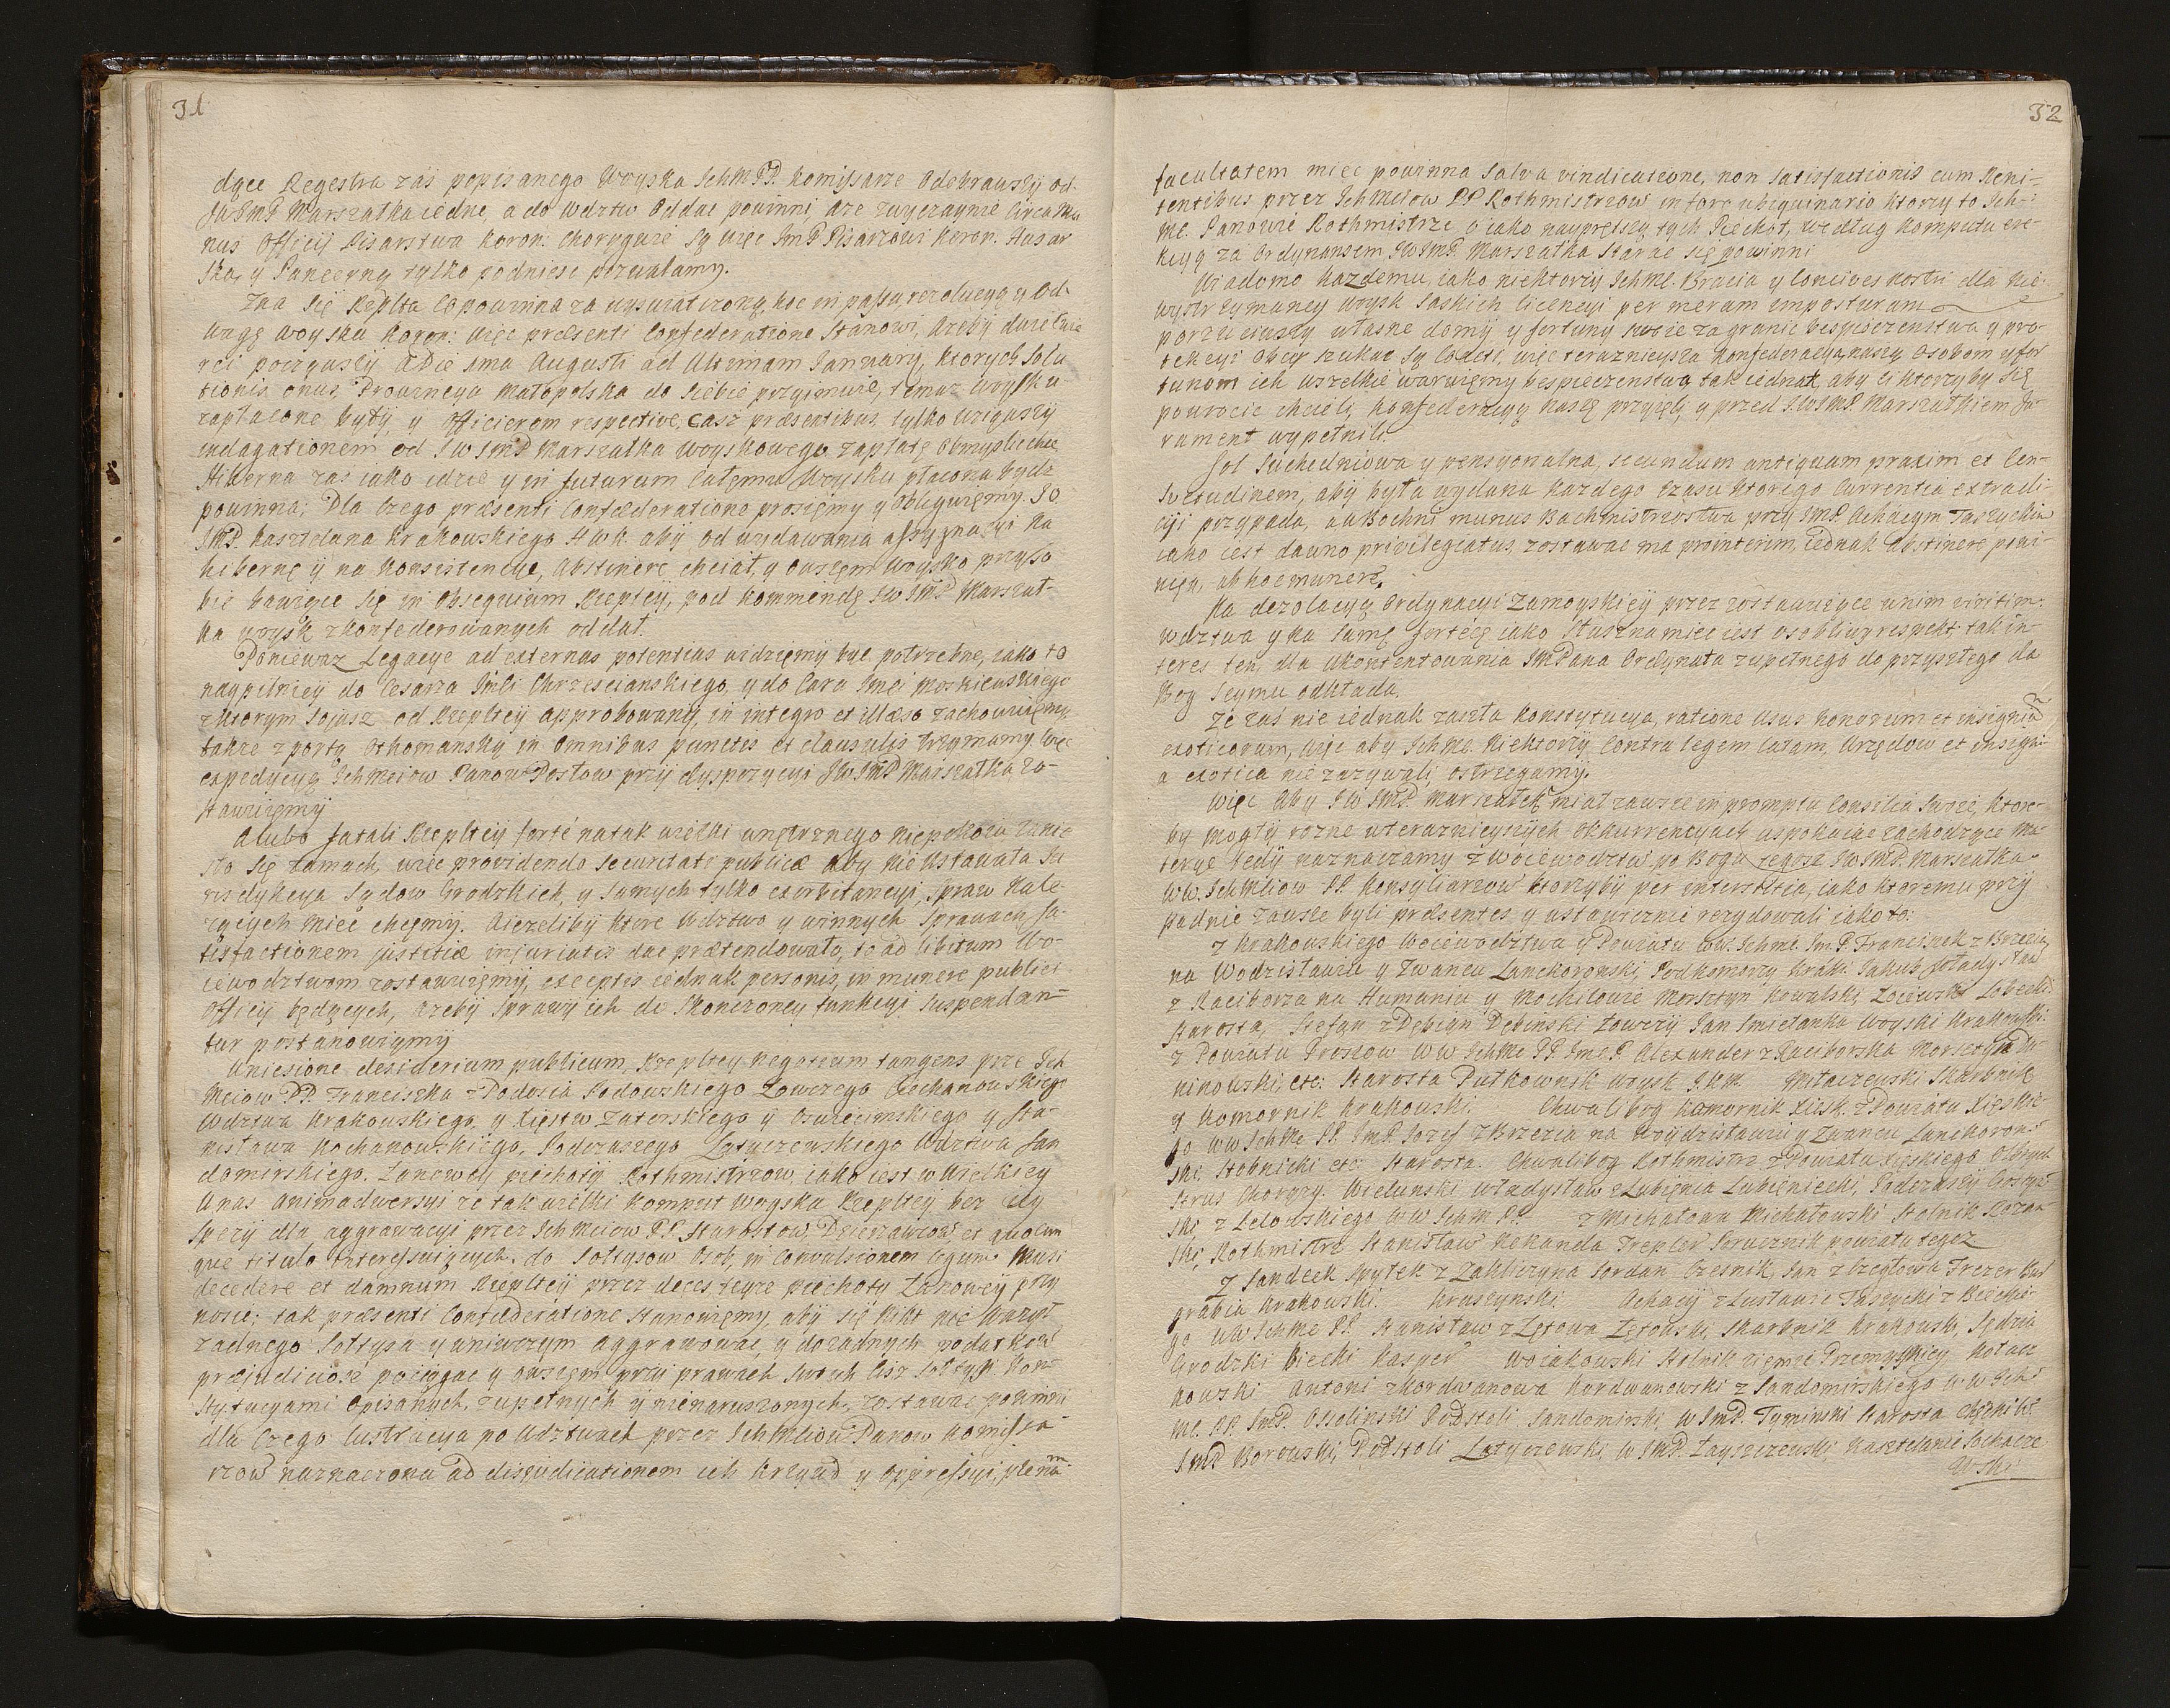 31
dące Regestra zas popisanego Woyska IchMPP. Komissarze Odebrawszy od
JWImP Marszałka iedne, a do Wdztw Oddac powinni, aze zwyczaynie Circa Mu
nus Officij Pisarstwa Koron: Chorągwie są więc ImP Pisarzowi Koron. Husar
ską, y Pancerną tylko podniesc pozwalamy.
Zna Się Rzplta Co powinna za wyswiatczoną, hoc in passu rezolucyą y Od-
wagę Woysku Koron: więc præsenti Confœderatione Stanowi, ażeby dwie ćwie
rci począwszy a Die 1ma Augusti ad Ultimam Januarij, ktorych Solu
tionis onus, Prowincya Małopolska do Siebie przyimuie, temuz woysku
zapłacone były, y Officierom respective, Casz præsentibus, tylko wziąwszy
indagationem od JWImP Marszałka Woyskowego zapłatę Obmyslic chce
Hiberna zas iako idzie y in futurum Całemu Woysku płacona bydz
powinna, Dla Czego præsenti Confœderatione prosięmy y Obliguięmy Jo
ImP. Kasztelana Krakowskiego H W K. aby od wydawania assygnacyi na
hibernę y na Konsistencye, Abstinere chciał, y owszem Woysko przy So
bie bawiące Się in Obsequium Rzepltey, pod kommendę JWImP Marszał-
ka woysk zkonfederowanych oddał.
Ponieważ Legacye ad externas potentias widzięmy byc potrzebne, iako to
naypilniey do Cesarza Imci Chrzescianskiego, y do Cara Imci Moskiewskiego
z ktorym Sojusz od Rzepltey approbowany, in integro et illæso zachowuięmy,
takze z portą Othomanską in Omnibus punctis et clausulis trzymamy więc
expedycyą Ichmciow Panow Posłow przy dyspozycyi JWImP Marszałka zo-
stawuięmy
A lubo fatali Rzepltey forte na tak wielki wnętrznego niepokoiu zanie
sło Się zamach, więc providendo Securitati publicæ aby nie ustawała Ju
risdykcya Sądow Grodzkich, y Samych tylko exorbitancyi, Spraw nale
zących miec chcęmy. A iezeliby ktore Wdztwo y w innych Sprawach Sa-
tisfactionem justitiæ injuriatis dac prætendowało, to ad libitum Wo-
iewodztwom zostawuięmy, exceptis iednak personis, in munere publici
Officij będących, azeby Sprawy ich do Skonczoney funkcyi Suspendan-
tur postanowiamy
Wniesione desiderium publicum, Rzepltey Negotium tangens prze Ich
Mciow PP. Franciszka z Podosia Podowskiego Łowczego Ciechanowskiego
Wdztwa Krakowskiego, y Xięstw Zatorskiego y Oswiecimskiego y Sta-
nisława Kochanowskiego, Podczaszego Latyczewskiego Wdztwa San
domirskiego. Łanowey piechoty Rothmistrzow, iako iest w Wielkiey
Unas animadwersyi ze tak wielki komput Woyska Rzepltey bez
dla aggrawacyi przez Ichmciow PP. Starostow, Dzierzawcow, et quocun
que titulo Interessuiących, do Sołtysow Osob, in Convulsionem Legum Musi
decedere et damnum Rzepltey przez deces teyze piechoty Łanowey przy
nosic; tak præsenti Confœderatione Stanowięmy, aby się Nikt nie wazył
zadnego Sołtysa y w niwczym aggrawowac, y do zadnych podatkow
præjudiciose pociągac y owszem przy prawach Swoich Ciz Sołtysi Kon-
stytucyami Opisanych, zupełnych y nienaruszonych, zostawac powinni
dla Czego Lustracya po Wdztwach przez IchMciow Panow Komissa-
rzow naznaczona ad disjudicationem ich krzywd y Oppressyi, plenam
32
facultatem miec powinna Salva vindicatione, non Satisfactionis cum Reni-
tentibus przez IchMciow PP Rothmistrzow in foro ubiquinario ktorzy to Ich-
Mć. Panowie Rothmistrze, o iako nayprętszą tych Piechot, według Komputu ere-
kcyą za Ordynansem JWImP. Marszałka Starac się powinni
Wiadomo kazdemu, iako niektorzy IchMć. Bracia y Concives Nostri dla Nie-
wystrzymaney woysk Saskich licencyi per meram imposturam
porzuciwszy własne domy y fortuny swoie za granic bespieczenstwa y pro-
tekcyi Obcey szukac Są Coacti, więc terazniejsza konfederacya naszą Osobom y for
tunom ich wszelkie warujemy bespieczenstwa tak iednak, aby Ci ktorzyby się
powrocic chcieli, konfederacyą Naszę przyięli, y przed JWImP. Marszałkiem Ju-
rament wypełnili.
Sol Suchedniowa y pensyonalna, secundum antiquam praxim et Con-
Svetudinem, aby była wydana kazdego Czasu ktorego Currentia extradi-
cyi przypada, a w Bochni munus Bachmistrzostwa przy ImP. Achacym Taszyckim
iako iest dawno privilegiatus, zostawac ma pro interim, iednak Abstinere powi-
nięn, ab hoc munere.
Na dezolacyą Ordynacyi Zamoyskiey przez zostawuiące w nim viritim:
Wdztwa y na Samę fortecę iako Słuszna miec iest osobliwy respekt, tak in-
teres ten, dla ukontentowania ImPana Ordynata zupełnego do przyszłego da
Bog Seymu odkłada.
Że zas nie iednak zaszła Konstytucya, ratione usus honorum et insigniũ
exoticorum, więc aby IchMć. Niektorzy Contra legem latam, Urzędow et insigni-
a exotica nie zazywali, ostrzegamy.
Więc aby JWImP Marszałek miał zawsze in promptu Consilia Swoie, ktore-
by mogły rozne w teraznieyszych Okkurrencyach uspokoiac zachodzące Ma-
terye tedy naznaczamy z Woiewodztw po Boga tegoz JWImP. Marszałka
WW. IchMciow PP. Konsyliarzow ktorzyby per interstitia, iako ktoremu przy
padnie zawsze byli præsentes, y ustawicznie rezydowali iako to:
z Krakowskiego Woiewodztwa y Powiatu WW. IchMć. Im. P. Franciszek z Brzezia
na Wodzisławiu y Zwancu Lanckoronski, Podkomorzy Krak: Jakub Władysław
z Raciborza na Humaniu y Mochilowie Morsztyn Kowalski,
Starosta, Stefan z Dębian Dębinski Łowczy Jan Smietanka Woyski Krakowski
z Powiatu Proszow: WW IchMc PP. ImcP. Alexander z Raciborska Morsztyn Do-
minowski etc: Starosta Putkownik Woysk J.K.M. Miłaczewski Skarbnik
y Komornik Krakowski. Chwalibog Komornik Xiesk. z Powiatu Xięskie-
go WW IchMc PP. ImP. Jozef z Brzezia na Woydzisławiu y Zwancu Lanckoron-
ski Stobnicki etc: Starosta. Chwalibog Rothmistrz z Powiatu Xięskiego Olbrych
Strus Chorązy. Wielunski Władysław z Lubięnia Lubięniecki, Podczaszy
ski, z Lelowskiego WW IchM PP. z Michałowa Michałowski Stolnik Rozan
ski, Rothmistrz Stanisław Nekanda Trepler Łowcznik powiatu tegoz
z Sandeck Spytek z Zakliczyna Jordan Czesnik, Jan z Trezer Bur
grabia Krakowski. Kruszynski Achacy z Lusławic Taszycki z Biecki
go WW IchMc PP. Stanisław z Zętowa Zętowski, Skarbnik Krakowski, Sędzia
Grodzki Biecki Kasper Woiakowski Stolnik ziemie Przemyskiey
kowski Antoni z Kordwanowa Kordwanowski z Sandomirskiego WW Ich
Mć. PP. ImP. Ossolinski Podstoli Sandomirski, W ImP. Tyminski Starosta
ImP Borowski, Podstoli Latyczewski, W ImP. Łayszczewski, Kasztelanic Sochacze
wski